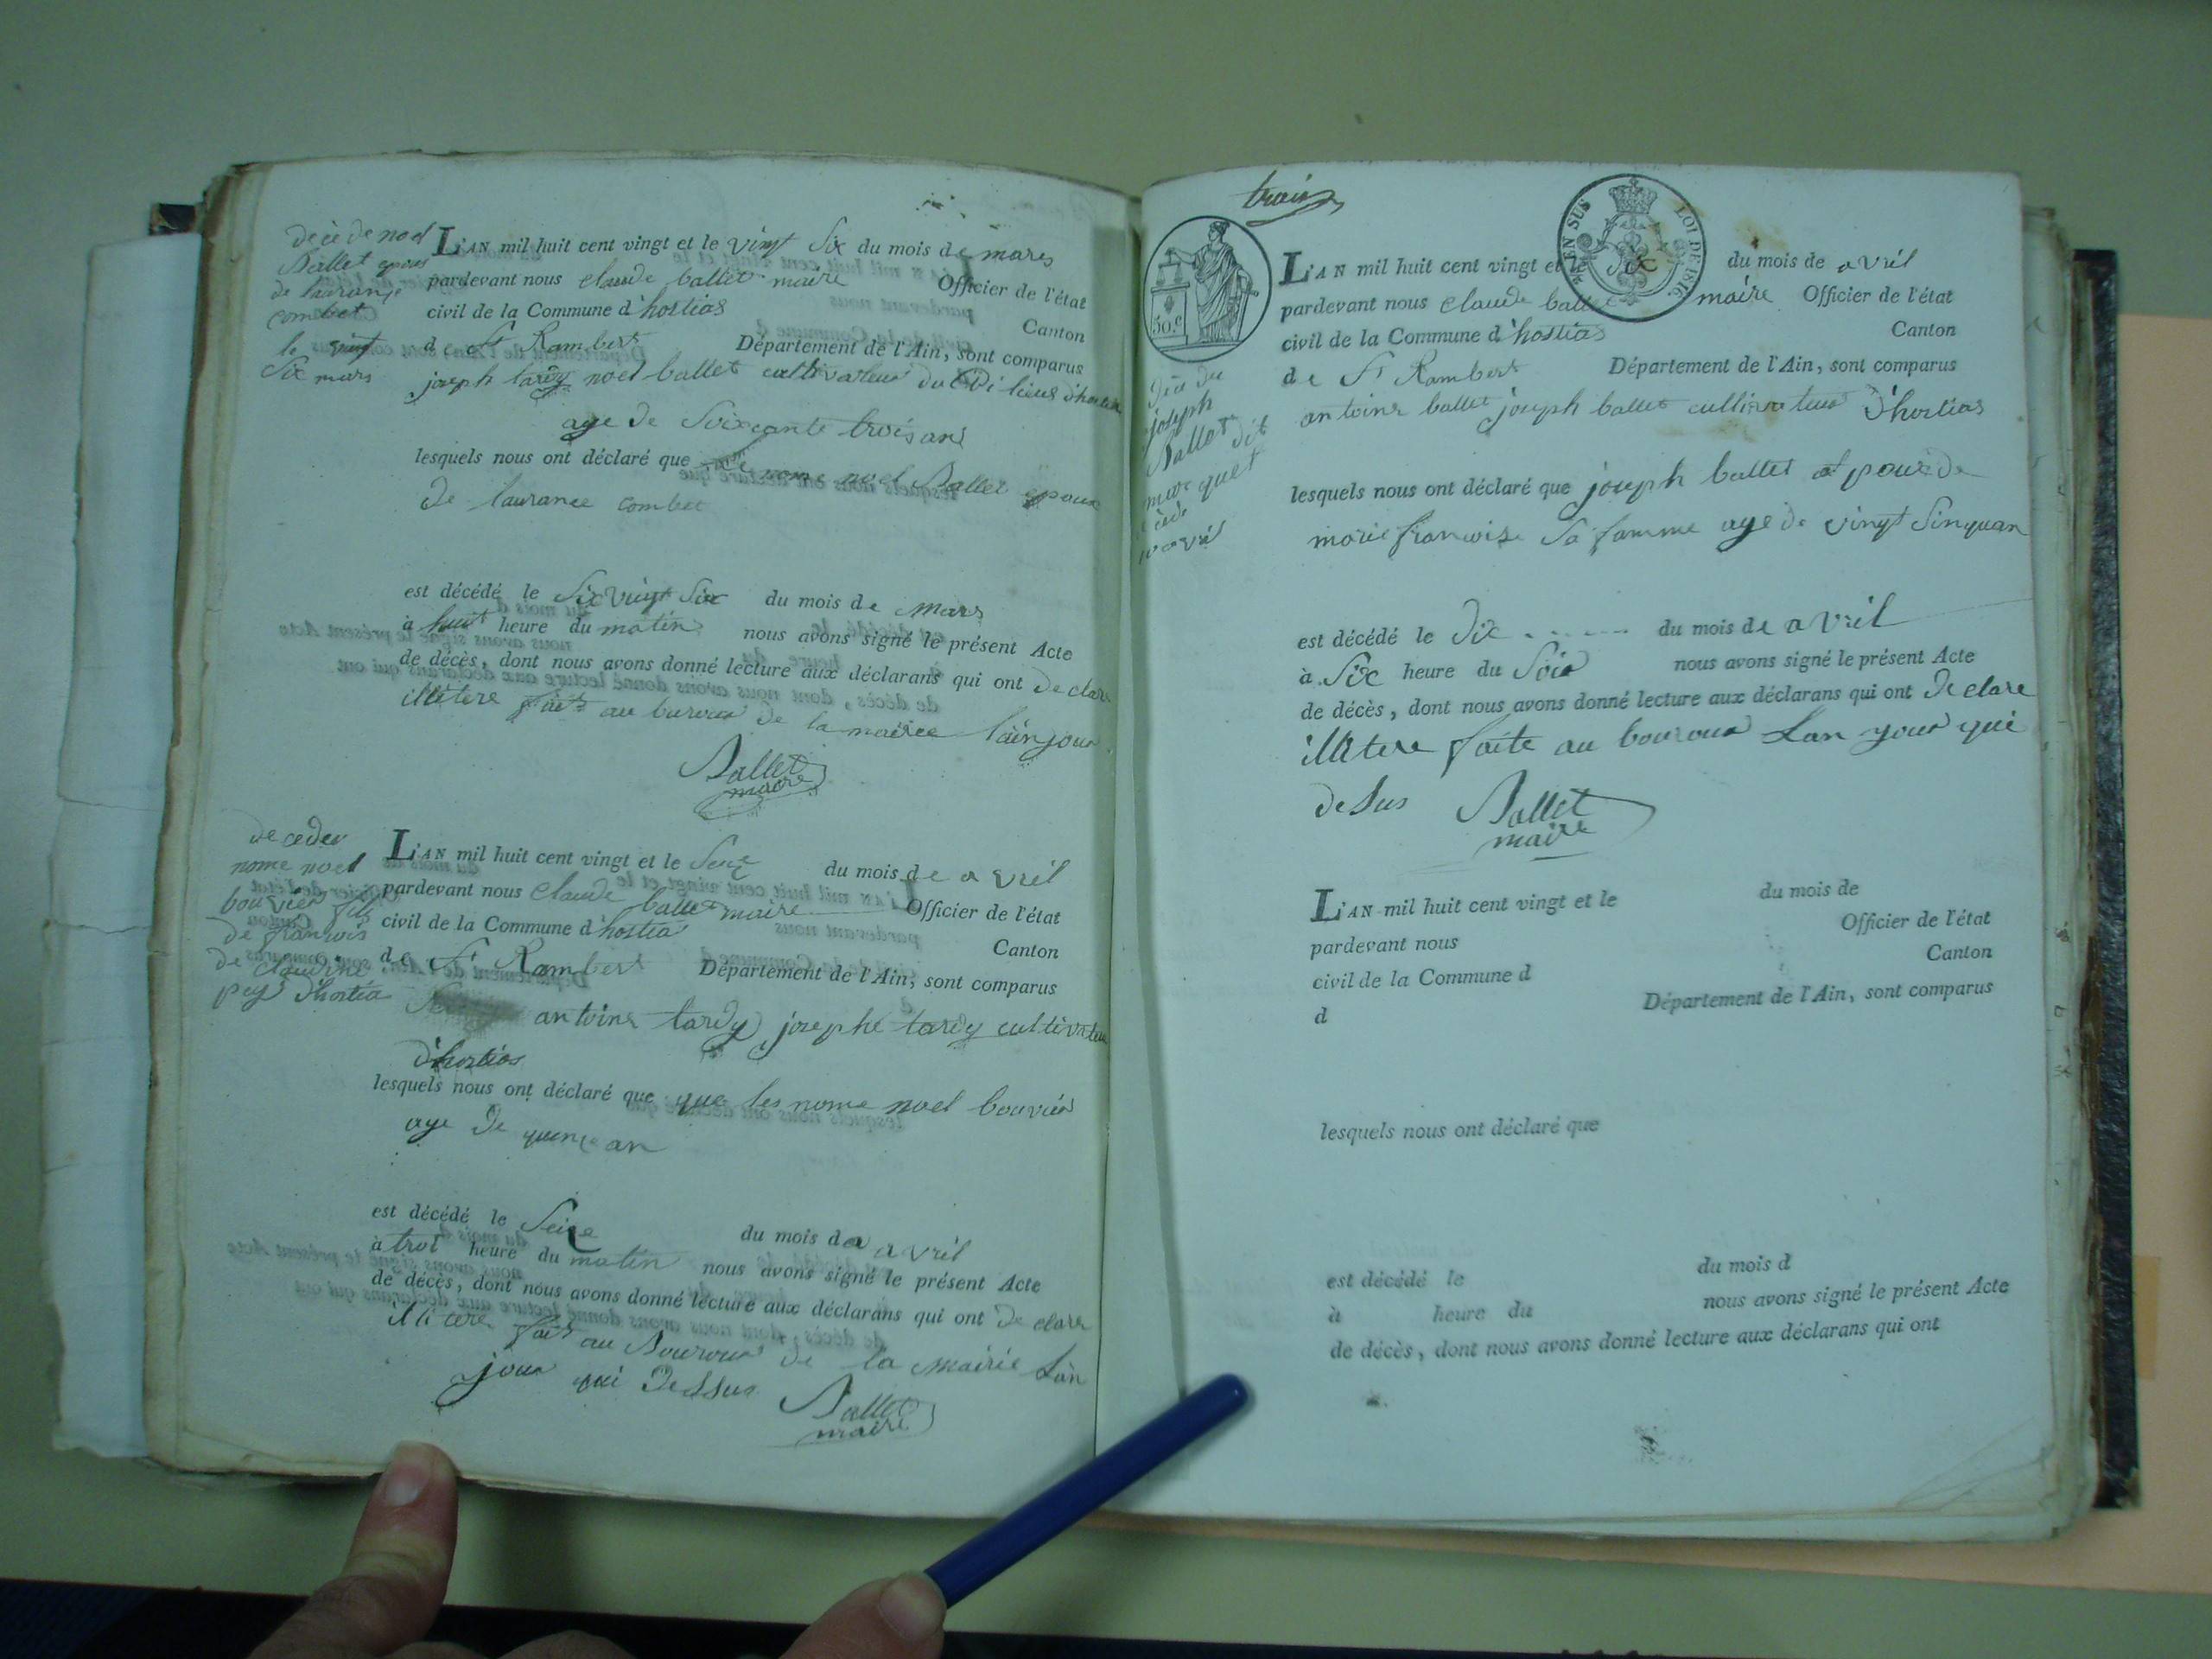 decède noel
Ballet epous
de laurance
combet
le vingt
Six mars
L'AN mil huit cent vingt et le vingt Six du mois de mars
pardevant nous claude ballet maire Officier de l'état
civil de la Commune d'hostias Canton
de St Rambert Département de l'Ain, sont comparus
joseph tardy noel ballet cultivateur du lieus d'hostias
age de Soixante trois ans
lesquels nous ont déclaré que nome noel Ballet epoux
de laurance combet
est décédé le Six vingt Six du mois de mars
à huit heure du matin nous avons signé le présent Acte
de décès, dont nous avons donné lecture aux déclarans qui ont de clare
illitere fait au buroua de la mairee lainjour
Ballet
maire
de ceder
nome noel
bouvier fils
de franwis
de claudine
pugi d'hostia
L'AN mil huit cent vingt et le Seize du mois de avril
pardevant nous claude ballet maire Officier de l'état
civil de la Commune d'hostia Canton
de St Rambert Département de l'Ain, sont comparus
antoine tardy josephe tardy cultivateur
d'hostias
lesquels nous ont déclaré que que les nome noel bouvier
age de quinze an
est décédé le Seize du mois de avril
à troi heure du matin nous avons signé le présent Acte
de décès, dont nous avons donné lecture aux déclarans qui ont de clare
illitere fait au Bouroua de la mairie Lan
jour qui dessus Ballet
maire
trois
EN SUS LOI DE 1816
50.c
joseph
Ballet dit
avril
L'AN mil huit cent vingt et le dix du mois de avril
pardevant nous claude ballet maire Officier de l'état
civil de la Commune d'hostias Canton
de St Rambert Département de l'Ain, sont comparus
antoine ballet joseph ballet cultivateur d'hostias
lesquels nous ont déclaré que joseph ballet et pous de
marie franwise Sa famme age de vingt Sinquan
est décédé le dix du mois de avril
à Six heure du Soir nous avons signé le présent Acte
de décès, dont nous avons donné lecture aux déclarans qui ont de clare
illitere faite au bouroua Lan jour qui
deSus Ballet
maire
L'AN mil huit cent vingt et le du mois de
pardevant nous Officier de l'état
civil de la Commune d Canton
d Département de l'Ain, sont comparus
lesquels nous ont déclaré que
est décédé le du mois d
à heure du nous avons signé le présent Acte
de décès, dont nous avons donné lecture aux déclarans qui ont